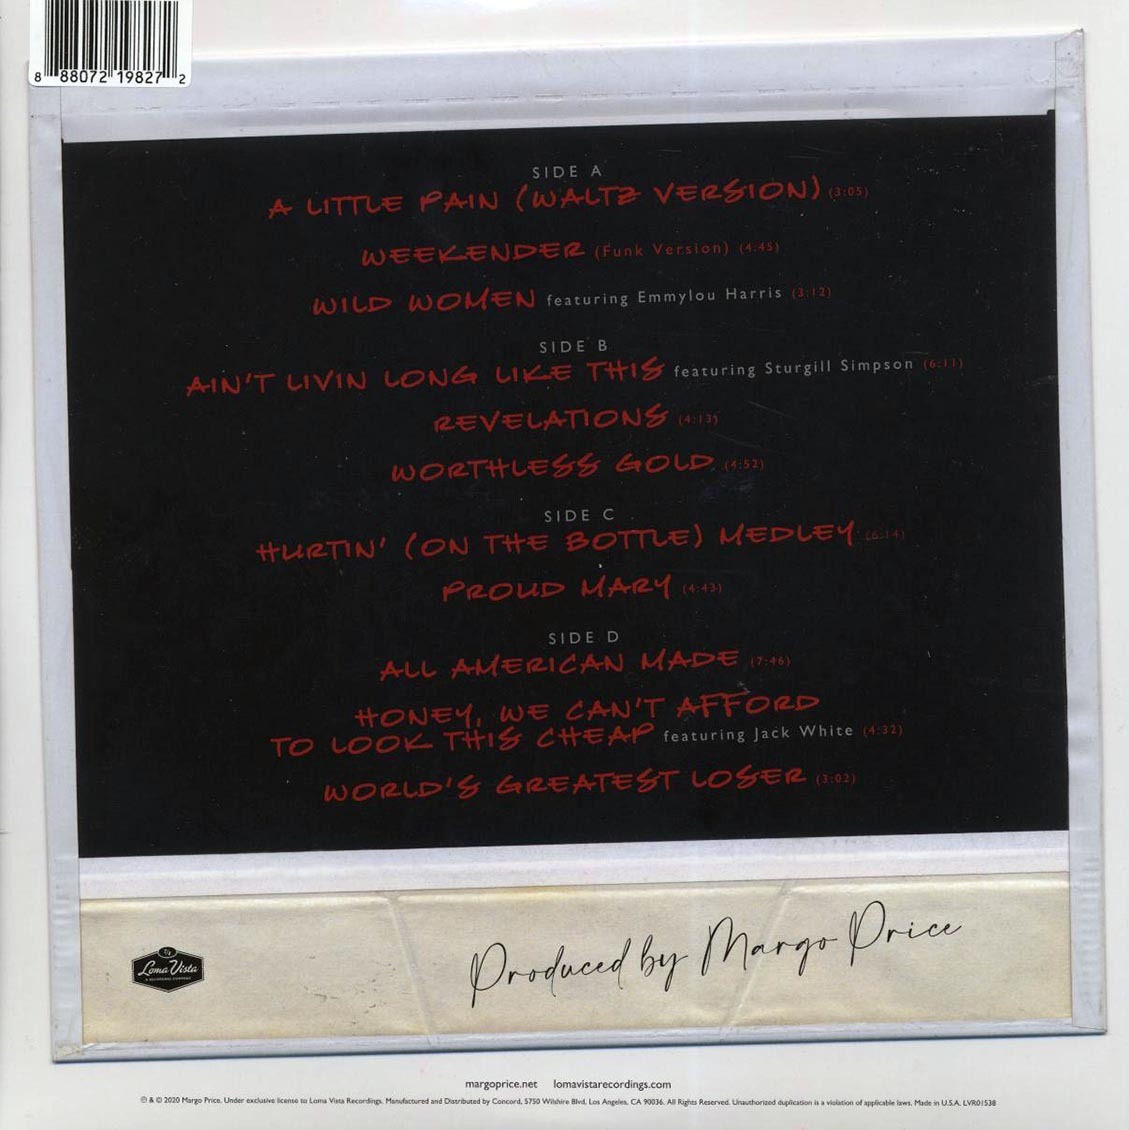 8 88072 19827 2
SIDE A
A LITTLE PAIN (WALTZ VERSION) (3:05)
WEEKENDER (Funk Version) (4:45)
WILD WOMEN featuring Emmylou Harris (3:12)
SIDE B
AIN'T LIVIN LONG LIKE THIS featuring Sturgill Simpson (6:11)
REVELATIONS (4:13)
WORTHLESS GOLD (4:52)
SIDE C
HURTIN' (ON THE BOTTLE) MEDLEY (6:14)
PROUD MARY (4:43)
SIDE D
ALL AMERICAN MADE (7:46)
HONEY, WE CAN'T AFFORD
TO LOOK THIS CHEAP featuring Jack White (4:32)
WORLD'S GREATEST LOSER (3:02)
Produced by Margo Price
Loma Vista
margoprice.net lomavistarecordings.com
℗ & © 2020 Margo Price. Under exclusive license to Loma Vista Recordings. Manufactured and Distributed by Concord, 5750 Wilshire Blvd, Los Angeles, CA 90036. All Rights Reserved. Unauthorized duplication is a violation of applicable laws. Made in U.S.A. LVR01538